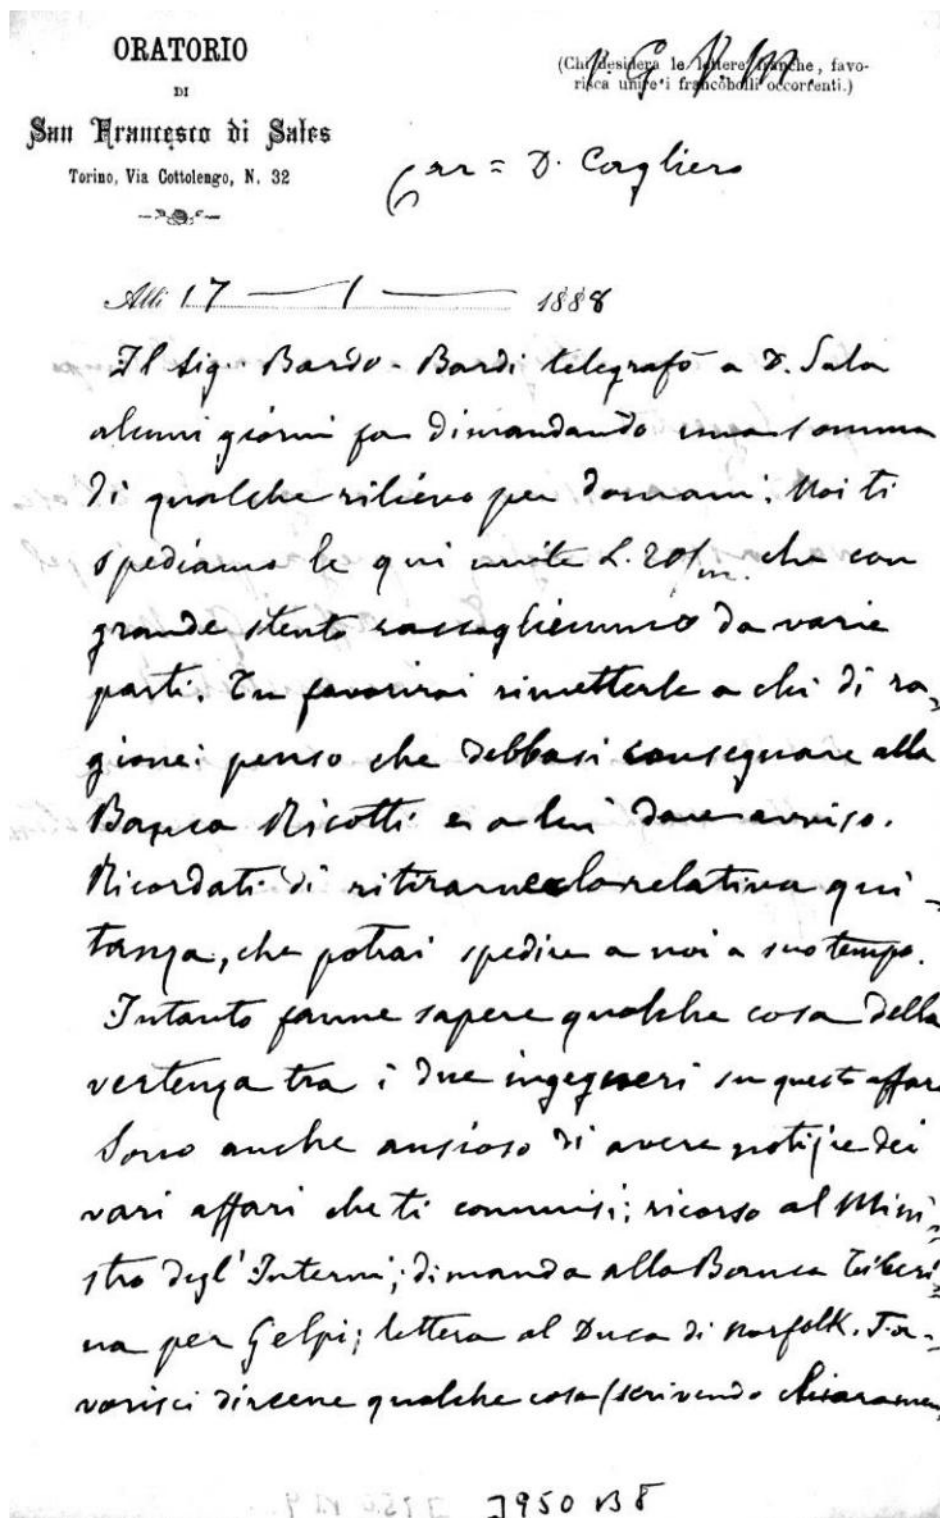 ORATORIO
DI
San Francesco di Sales
Torino, Via Cottolengo, N. 32
(Chi desidera le lettere franche, favo-
risca unire i francobolli occorrenti.)
Car = D. Cagliero
Alli 17 — 1 — 1888
Il Sig. Bardo - Bardi telegrafò a D. Sala
alcuni giorni fa dimandando una somma
di qualche rilievo per domani. Noi ti
spediamo le qui unite L. 20/m. che con
grande stento raccogliemmo da varie
parti. Tu favorirai rimetterle a chi di ra-
gione: penso che debbasi consegnare alla
Banca Ricotti e a lui dare avviso.
Ricordati di ritirarne la relativa qui-
tanza, che potrai spedire a noi a suo tempo.
Intanto fanne sapere qualche cosa della
vertenza tra i due ingegneri su questo affare
Sono anche ansioso di avere notizie dei
vari affari che ti commisi; ricorso al Mini-
stro degl' Interni; dimanda alla Banca Tiberi-
na per Gelpi; lettera al Duca di Norfolk. Fa-
vorisci dircene qualche cosa (scrivendo chiaramen-
J950 B8